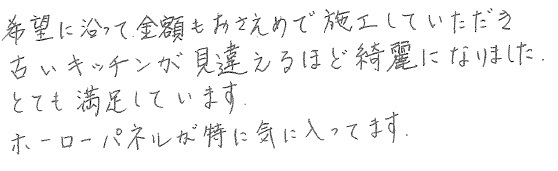 希望に沿って金額もおさえめで施工していただき
古いキッチンが見違えるほど綺麗になりました.
とても満足しています.
ホーローパネルが特に気に入ってます.